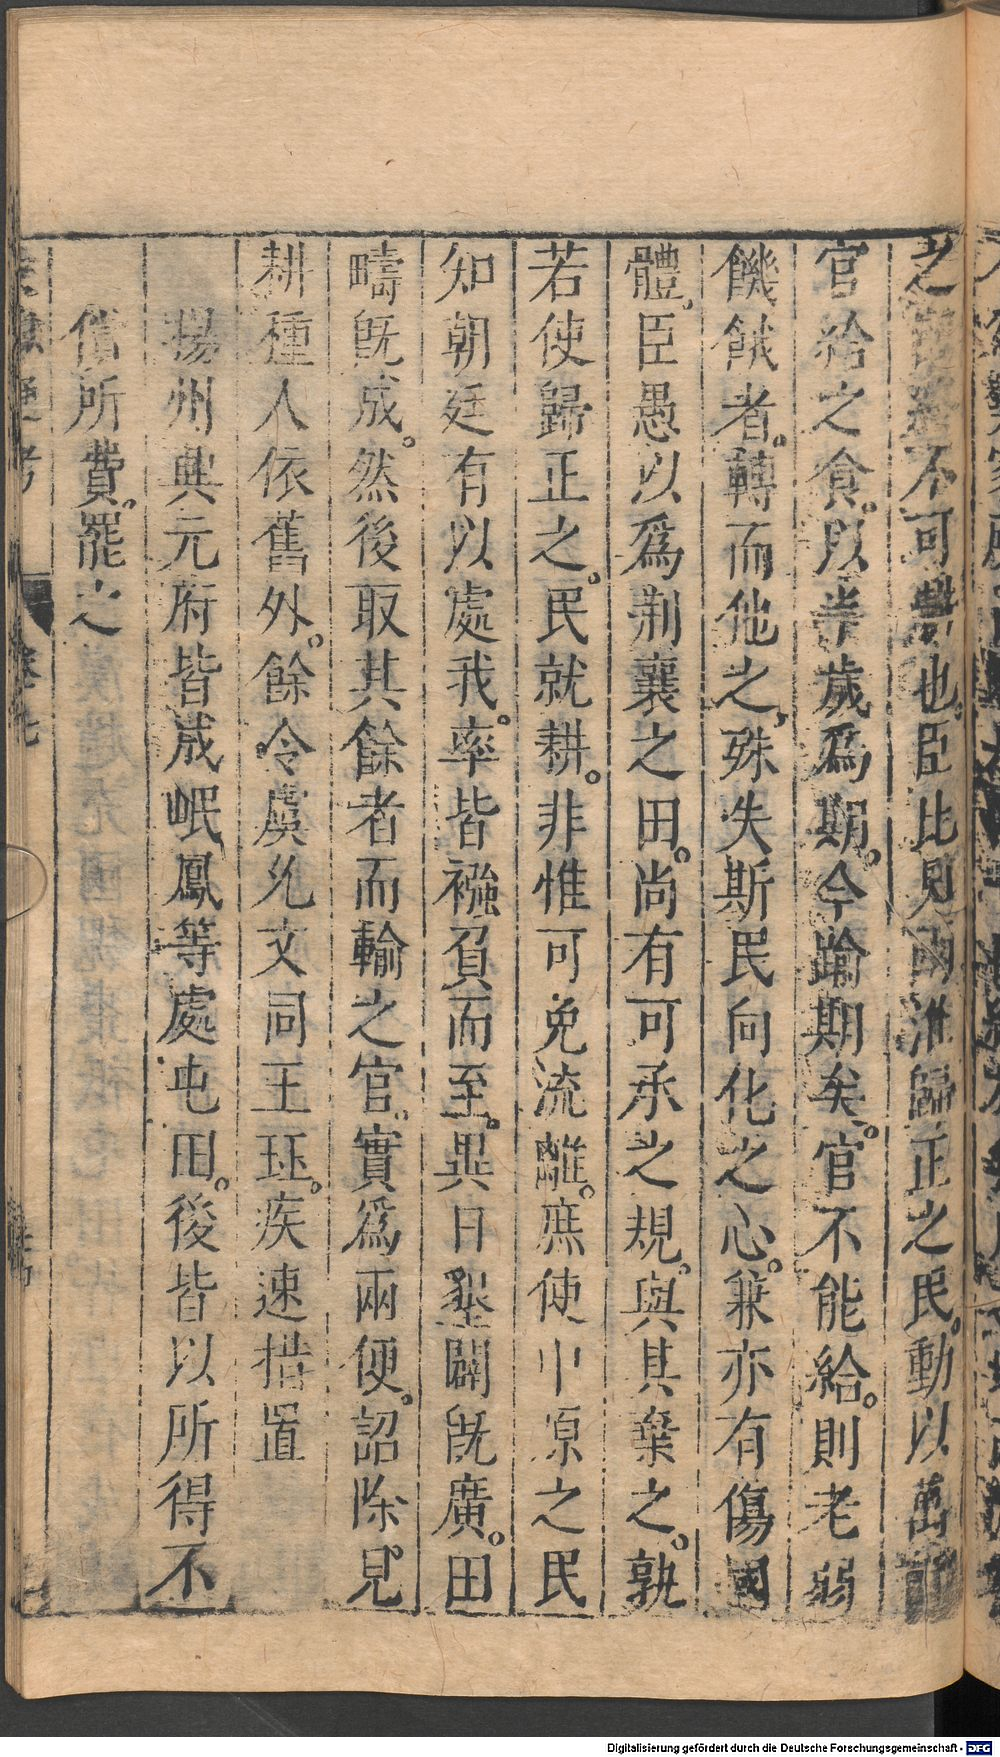 之不可勞也。臣比見兩淮歸正之民。動以萬
官給之食。以半歲爲期。今踰期矣。官不能給。則老弱
饑餓者。轉而他之、殊失斯民向化之心。兼亦有傷國
體。臣愚以爲荆襄之田。尚有可承之規。與其棄之。孰
若使歸正之。民就耕。非惟可免流離。庶使中原之民
知朝廷有以處我。率皆襁負而至。異日墾闢既廣。田
疇既成。然後取其餘者而輸之官。實爲兩便。詔除見
耕種人依舊外。餘令虞允文同王珏。疾速措置
揚州興元府皆成岷鳳等處屯田。後皆以所得不
償所費。罷之
通考
卷七
Digitalisierung gefördert durch die Deutsche Forschungsgemeinschaft - DFG